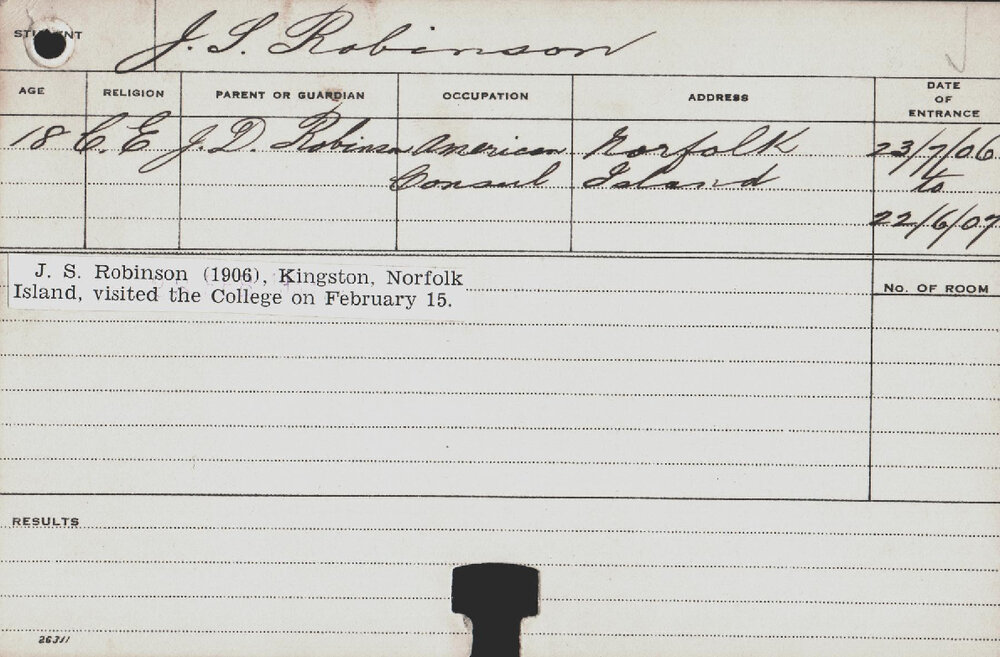 STUDENT J. S. Robinson
AGE RELIGION PARENT OR GUARDIAN OCCUPATION ADDRESS DATE OF ENTRANCE
18 C. E J. D. Robinson American Norfolk 23/7/06
Consul Island to
22/6/07
J. S. Robinson (1906), Kingston, Norfolk
Island, visited the College on February 15.
No. OF ROOM
RESULTS
26311